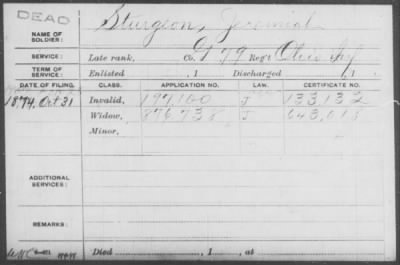 DEAD
NAME OF SOLDIER: Sturgeon, Jeremiah
SERVICE: Late rank, Co. G 79 Reg't Ohio Inf
TERM OF SERVICE: Enlisted , 1 Discharged , 1
DATE OF FILING. CLASS. APPLICATION NO. LAW. CERTIFICATE NO.
1874. Oct 31 Invalid, 197,100 J 133,132
Widow, 876,738 J 643,013
Minor,
ADDITIONAL SERVICES:
REMARKS:
Died , 1 , at